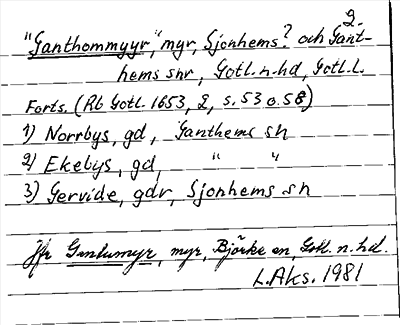 2.
"Ganthommyyr," myr, Sjonhems? och Gant-
hems snr, Gotl. n. hd, Gotl. l.
Forts. (Rb Gotl. 1653, 2, s. 53 o. 58)
1) Norrbys, gd, Ganthems sn
2) Ekebys, gd, " "
3) Gervide, gdr, Sjonhems sn
Jfr Gentumyr, myr, Björke sn, Gotl. n. hd.
L. Aks. 1981